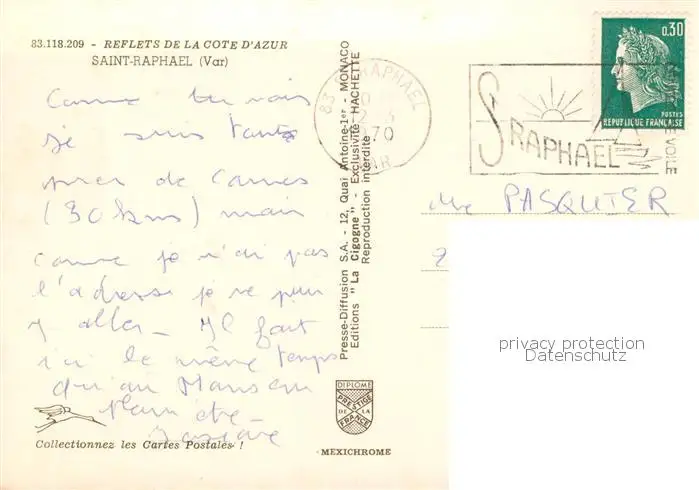 83.118.209 - REFLETS DE LA COTE D'AZUR
SAINT-RAPHAEL (Var)
Comme tu vois
je suis tout
près de Cannes
(30 kms) mais
comme je n'ai pas
l'adresse je ne puis
y aller - Il fait
ici le même temps
qu'au Mans en
plein été -
Collectionnez les Cartes Postales !
Presse-Diffusion S.A. - 12, Quai Antoine-1er - MONACO
Editions "La Cigogne" - Exclusivité HACHETTE
Reproduction interdite
DIPLOME
PRESTIGE
DE LA
FRANCE
MEXICHROME
83 RAPHAEL
1970
VAR
S RAPHAEL
VOILE
0,30
POSTES
REPUBLIQUE FRANÇAISE
PASQUIER
privacy protection
Datenschutz